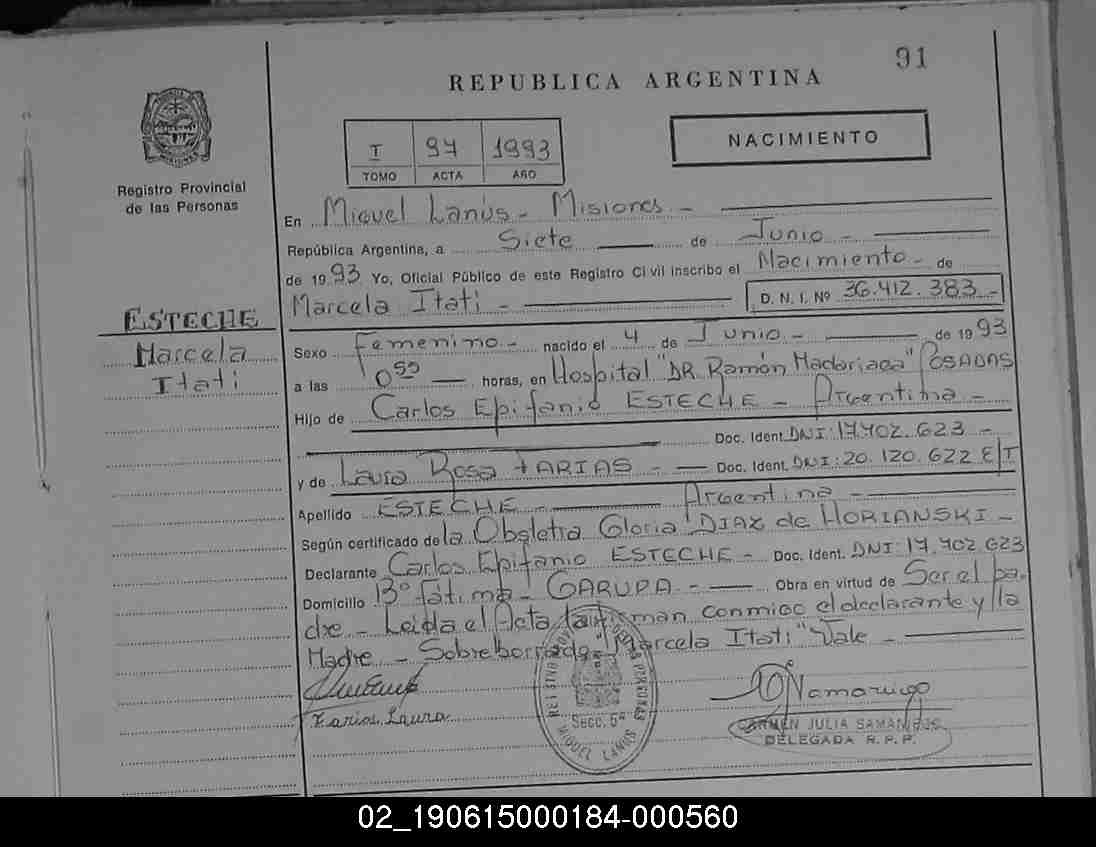 91
REPUBLICA ARGENTINA
I 94 1993
TOMO ACTA AÑO
NACIMIENTO
Registro Provincial
de las Personas
En Miguel Lanús - Misiones -
República Argentina, a Siete de Junio -
de 1993 Yo, Oficial Público de este Registro Civil inscribo el Nacimiento - de
Marcela Itatí - D. N. I. Nº 36.412.383 -
ESTECHE
Marcela
Itatí
Sexo Femenino - nacido el 4 de Junio - de 1993
a las 0 50 horas, en Hospital "DR. Ramón Madariaga" POSADAS
Hijo de Carlos Epifanio ESTECHE - Argentina -
Doc. Ident. DNI: 17.702.623 -
y de Laura Rosa FARIAS - Doc. Ident. DNI: 20.120.622 E/T
Apellido ESTECHE Argentina -
Según certificado de la Obstetra Gloria DIAZ de HORIANSKI -
Declarante Carlos Epifanio ESTECHE - Doc. Ident. DNI: 17.702.623
Domicilio Bº Fátima - GARUPA - Obra en virtud de Ser el pa-
dre - Leida el Acta la firman conmigo el declarante y la
Madre - Sobreborrado "Marcela Itatí" Vale -
Farias Laura
Secc. 6ª
MIGUEL LANUS
CARMEN JULIA SAMANIEGO
DELEGADA R. P. P.
02_190615000184-000560